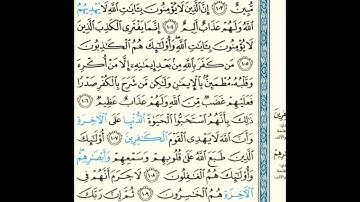 مُّبِينٌ ۝١٠٣ إِنَّ ٱلَّذِينَ لَا يُؤْمِنُونَ بِـَٔايَٰتِ ٱللَّهِ لَا يَهْدِيهِمُ
ٱللَّهُ وَلَهُمْ عَذَابٌ أَلِيمٌ ۝١٠٤ إِنَّمَا يَفْتَرِى ٱلْكَذِبَ ٱلَّذِينَ
لَا يُؤْمِنُونَ بِـَٔايَٰتِ ٱللَّهِ وَأُو۟لَٰٓئِكَ هُمُ ٱلْكَٰذِبُونَ
۝١٠٥ مَن كَفَرَ بِٱللَّهِ مِنۢ بَعْدِ إِيمَٰنِهِۦٓ إِلَّا مَنْ أُكْرِهَ
وَقَلْبُهُۥ مُطْمَئِنٌّۢ بِٱلْإِيمَٰنِ وَلَٰكِن مَّن شَرَحَ بِٱلْكُفْرِ صَدْرًا
فَعَلَيْهِمْ غَضَبٌ مِّنَ ٱللَّهِ وَلَهُمْ عَذَابٌ عَظِيمٌ ۝١٠٦
ذَٰلِكَ بِأَنَّهُمُ ٱسْتَحَبُّوا۟ ٱلْحَيَوٰةَ ٱلدُّنْيَا عَلَى ٱلْءَاخِرَةِ
وَأَنَّ ٱللَّهَ لَا يَهْدِى ٱلْقَوْمَ ٱلْكَٰفِرِينَ ۝١٠٧ أُو۟لَٰٓئِكَ
ٱلَّذِينَ طَبَعَ ٱللَّهُ عَلَىٰ قُلُوبِهِمْ وَسَمْعِهِمْ وَأَبْصَٰرِهِمْ
وَأُو۟لَٰٓئِكَ هُمُ ٱلْغَٰفِلُونَ ۝١٠٨ لَا جَرَمَ أَنَّهُمْ فِى
ٱلْءَاخِرَةِ هُمُ ٱلْخَٰسِرُونَ ۝١٠٩ ثُمَّ إِنَّ رَبَّكَ